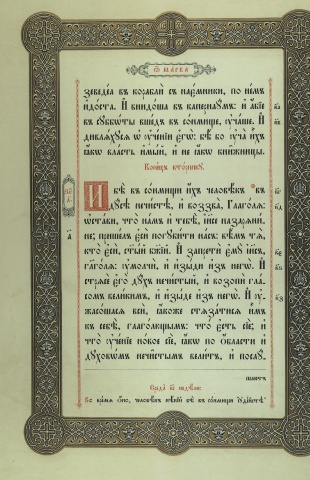 Ѿ МАРКА
зеведеа въ корабли съ наемники, по немъ
идоста. И внидоша въ капернаꙋмъ: и абїе
въ сꙋббѡты вшедъ въ сонмище, ᲂучаше. И
дивлѧхꙋсѧ ѡ ᲂученїи єгѡ: бѣ бо ᲂуча ихъ
ꙗкѡ власть имый, и не ꙗкѡ книжницы.
Конецъ вторникꙋ.
И бѣ въ сонмищи ихъ человѣкъ въ
дꙋсѣ нечистѣ, и воззва, глаголѧ:
ѡстави, что намъ и тебѣ, іисе назарѧни-
не; пришелъ єси погꙋбити насъ: вѣмъ тѧ,
кто єси, ст҃ый бж҃їй. И запрети ємꙋ іисъ,
глаголѧ: ᲂумолчи, и изыди изъ негѡ. И
стрѧсе єго дꙋхъ нечистый, и возопи гла-
сомъ великимъ, и изыде изъ негѡ. И ᲂу-
жасошасѧ вси, ꙗкоже стѧзатисѧ имъ
къ себѣ, глаголющымъ: что єсть сїе; и
что ᲂученїе новое сїе, ꙗкѡ по ѻбласти и
дꙋховѡмъ нечистымъ велитъ, и послꙋ-
шаютъ
Во времѧ ѻно, человѣкъ нѣкїй бѣ въ сонмищи